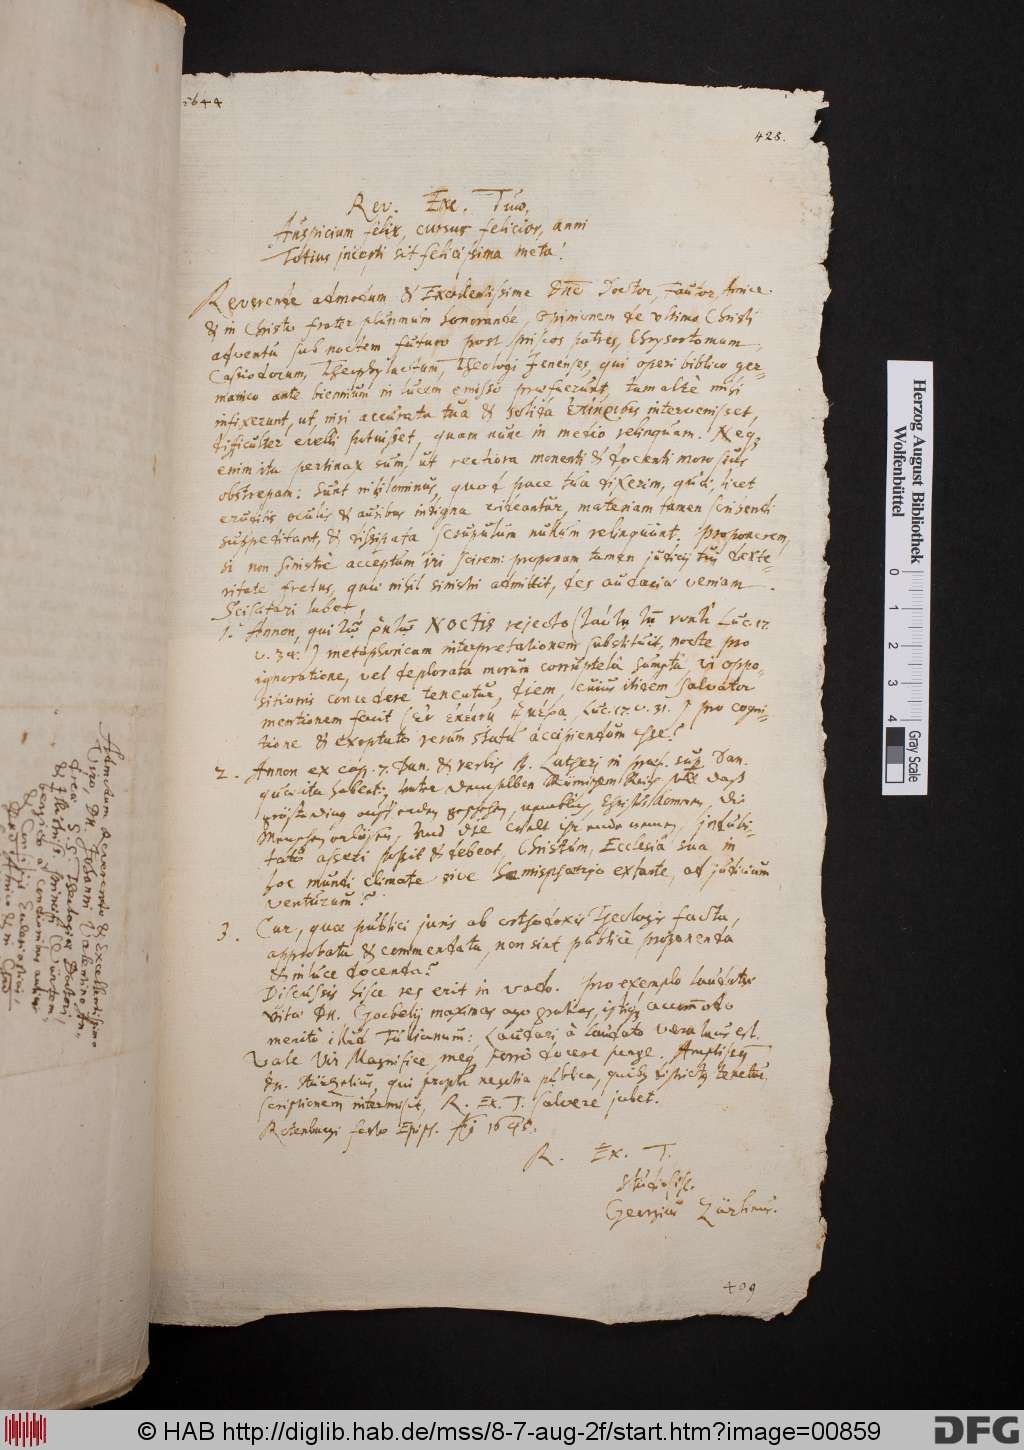 1644
425.
Rev. Exc. Tuæ.
Auspicium felix, cursus felicior, anni
Totius incepti sit felicissima meta!
Reverende admodum & Excellentissime Dñe Doctor, Fautor, Amice
& in Christo frater plurimum honorande, Opinionem de ultimo Christi
adventu sub noctem futuro post priscos patres, Chrysostomum,
Cassiodorum, Theophylactum, Theologi Jenenses, qui operi biblico ger-
manico ante biennium in lucem emisso præfuerunt, tam altè mihi
infixerunt, ut, nisi accurata tua & solida intervenisset,
difficulter evelli potuisset, quam nunc in medio relinquam. Neq;
enim ita pertinax sum, ut rectiora monenti & docenti morosius
obstrepam: Sunt nihilominus, quod pace tua dixerim, quæ, licet
eruditis oculis & auribus indigna videantur, materiam tamen scribendi
suppeditant, & dissipata scrupulum nullum relinquunt. Proponerem,
si non sinistrè acceptum iri scirem: proponam tamen judicij tui dexte-
ritate fretus, quæ nihil sinistri admittit, des audaciæ veniam.
Scisitari lubet,
1. Annon, qui NOCTIS rejecto Luc. 17.
v. 34. ) metaphoricam interpretationem substituit, nocte pro
ignoratione, vel deplorata morum corruptela sumpta, vi oppo-
sitionis concedere teneatur, diem, cuius itidem Salvator
mentionem facit ( Luc. 17. v. 31. ) pro cogni-
tione & exoptato rerum statu accipiendum esse?
2. Annon ex cap. 7. Dan. & verbis B. Lutheri in præf. sup. Dan.
quæ ita habent: unter demselben Römischen Reich
Menschen erlösen, und die Welt indubi-
tatò asseri possit & debeat, Christum, Ecclesia sua in
hoc mundi climate sive hemisphærio extante, ad judicium
venturum?
3. Cur, quæ publici juris ab orthodoxis Theologis facta,
approbata & commendata, non sint publicè proponenda
& in luce docenda?
Discussis hisce res erit in vado. Pro exemplo laudatæ
vitæ Dn. Goebelij maximas ago gratias, istiq; accommodo
meritò illud Tullianum: Laudari à laudato vera laus est.
Vale Vir Magnifice, meq; porrò docere perge. Ampliss.
Dn. qui propter negotia publica, quib; districtus tenetur
scriptionem intermisit, R. Ex. T. salvere jubet.
Rotenburgi festo Epiph. A° 1645.
R. Ex. T.
studiosiss.
Georgius Zürlinus.
409
Admodum Reverendo & Excellentissimo
Viro, Dn. Johanni Valentino An-
dreæ S. S. Theologiæ Doctori,
& Illustriss. Principi Würtem-
bergico à concionibus aulicis
& Consiliis Ecclesiasticis,
Dno
Herzog August Bibliothek
Wolfenbüttel
0 1 2 3 4
Gray Scale
© HAB http://diglib.hab.de/mss/8-7-aug-2f/start.htm?image=00859
DFG